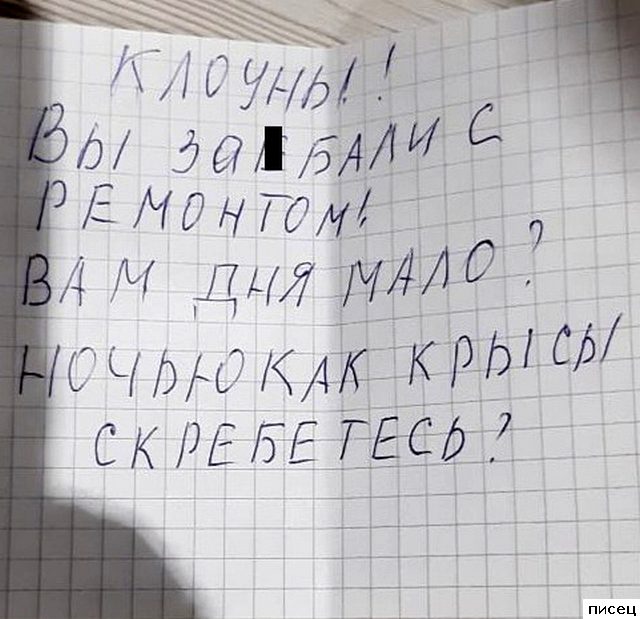 КЛОУНЫ!!
ВЫ ЗА БАЛИ С
РЕМОНТОМ!
ВАМ ДНЯ МАЛО?
НОЧЬЮ КАК КРЫСЫ
СКРЕБЕТЕСЬ?
писец